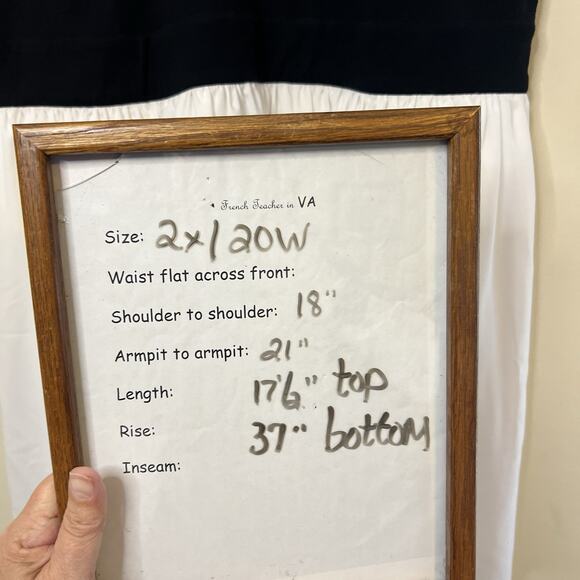 French Teacher in VA
Size: 2x/20W
Waist flat across front:
Shoulder to shoulder: 18"
Armpit to armpit: 21"
Length: 17'6" top
Rise: 37" bottom
Inseam: